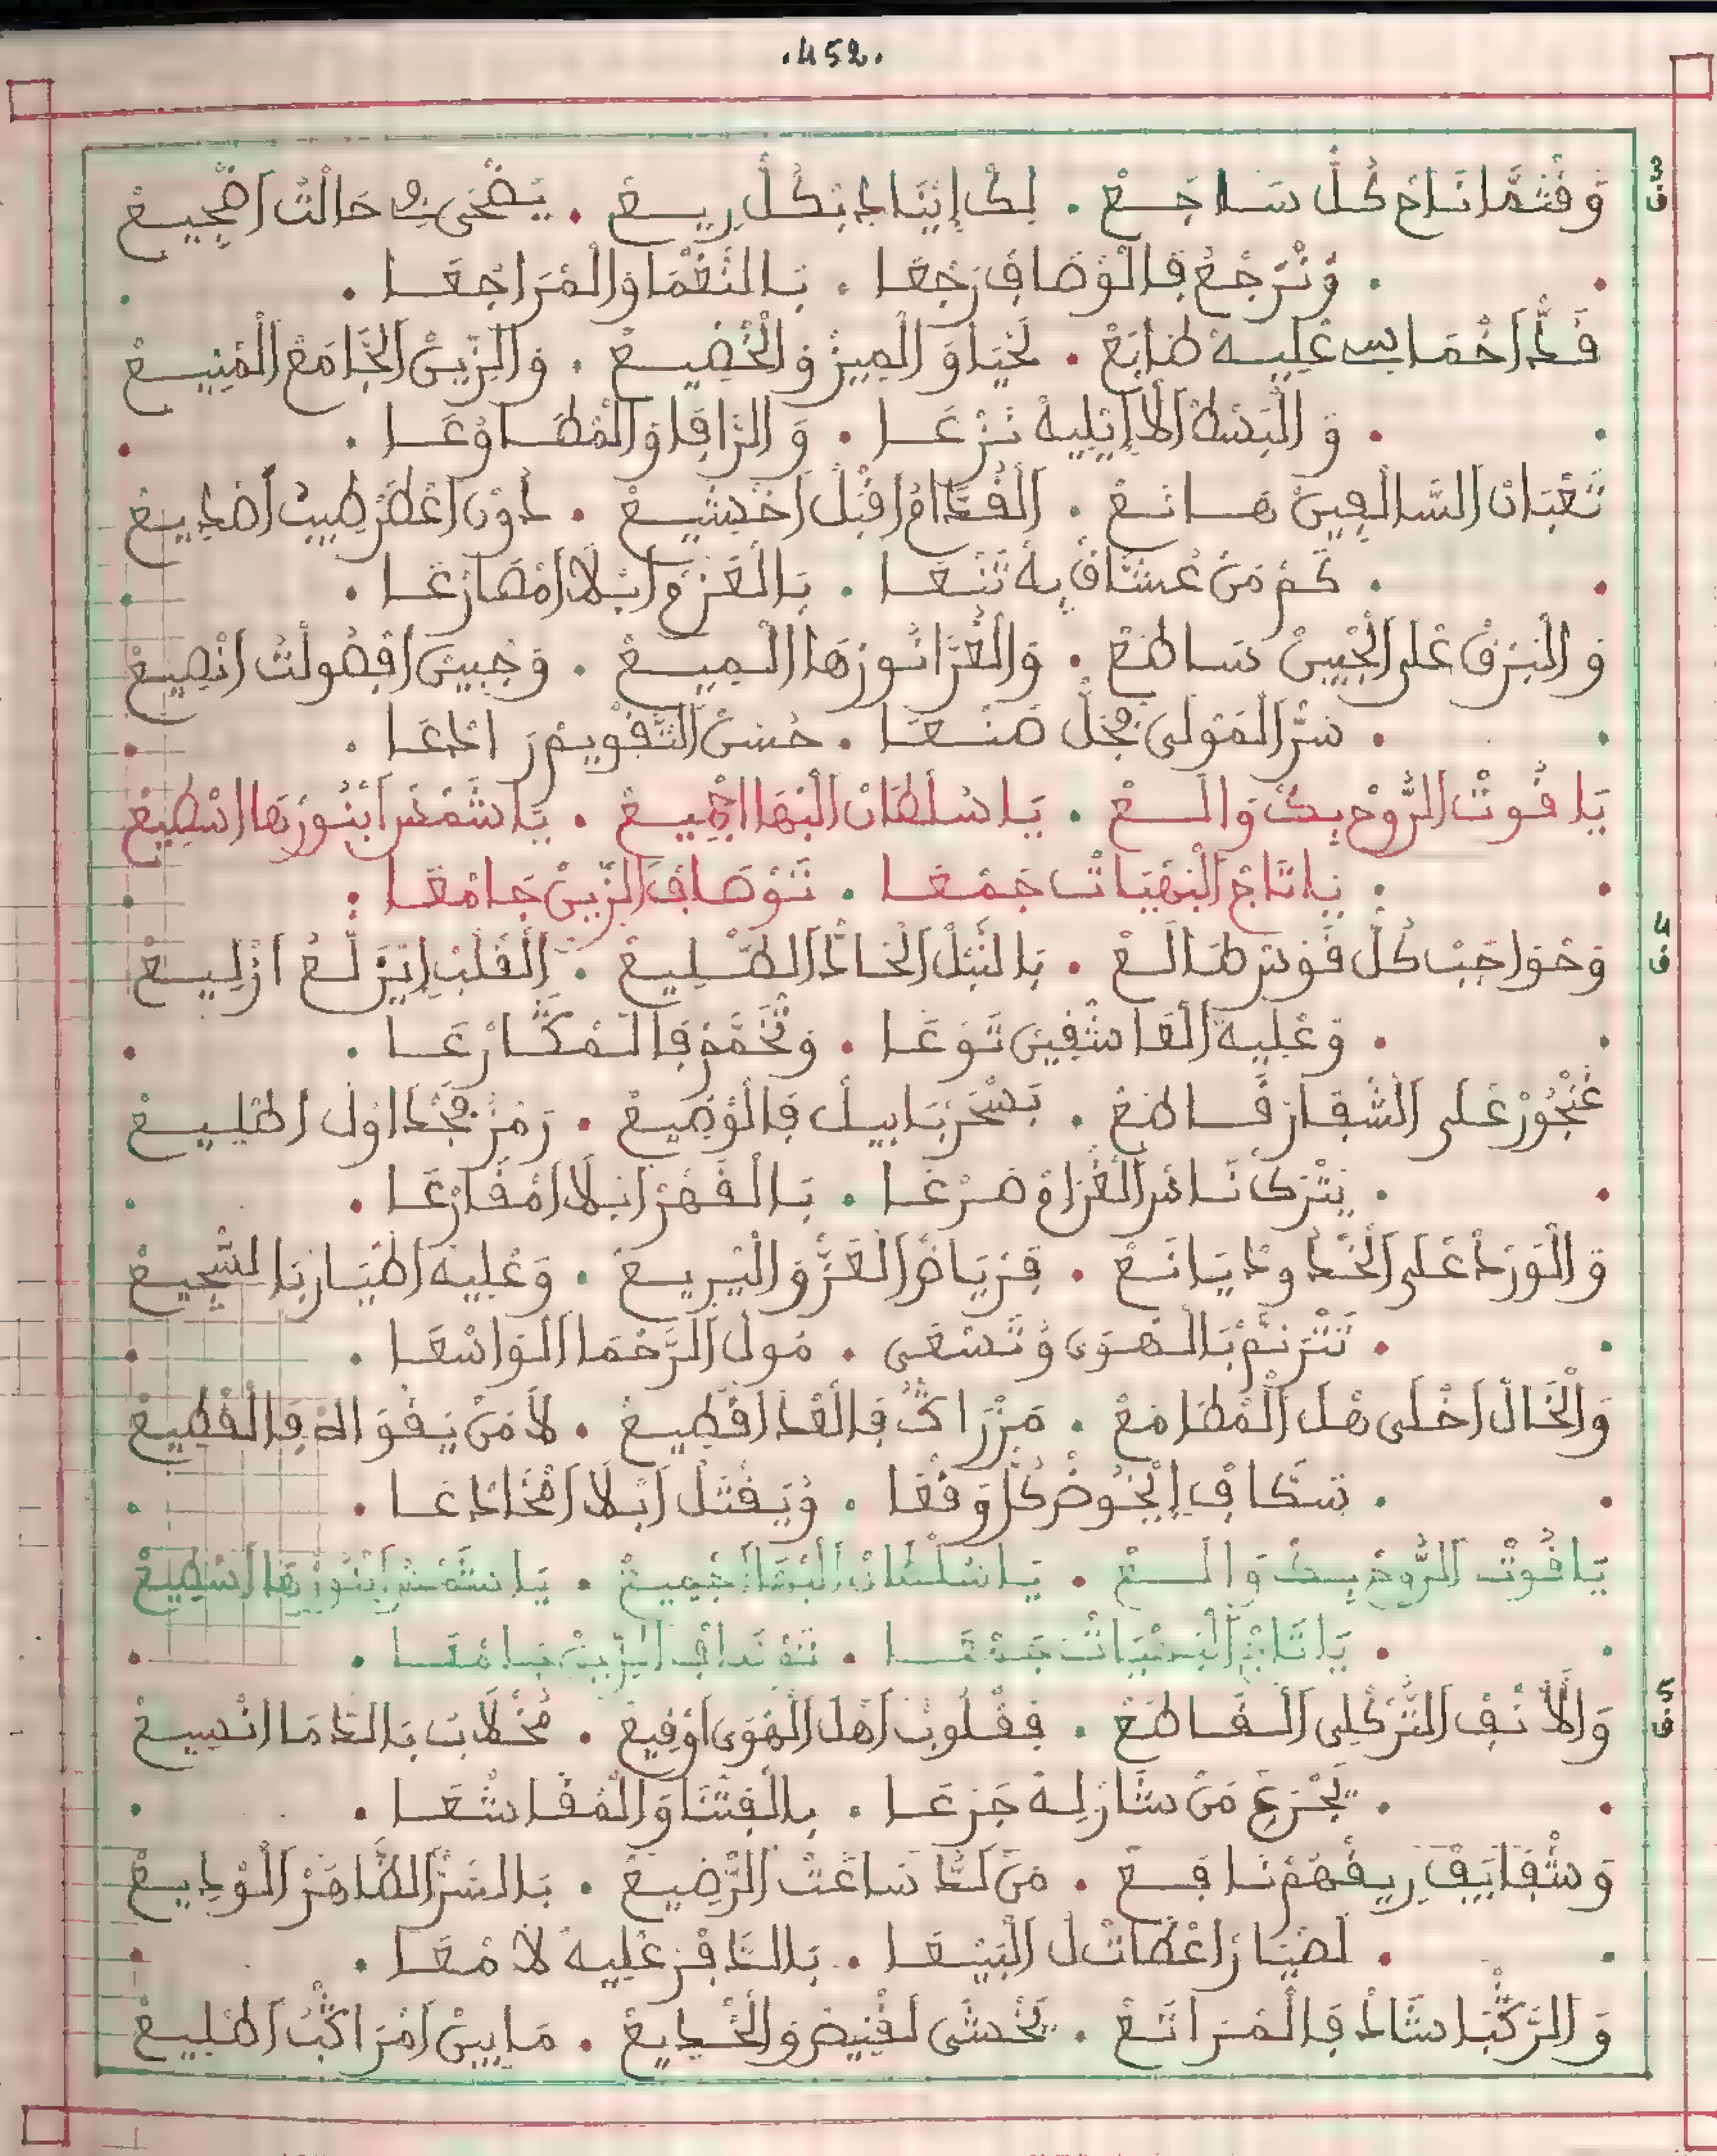 .452.
وَقْتْمَّا نَاحْ كُلّ سَاجَعْ . لِكْ إِينَادِ بْكُلّ رِيعْ . يَضْحَى فِ حَالْتْ اضْجِيعْ
. وُنْرَجَّعْ فَالْوْصَافْ رَجْعَا . بَالنَّغْمَا وَالْمْرَاجْعَا .
قَدّ اخْمَاسِي عْلِيهْ طَابَعْ . لَحْيَا وَ الْمِيزْ وَالْخْضِيعْ . وَالزِّينْ الْجَامَعْ الْمْنِيعْ
. وَ الْبَسْطْ الاَّ إِيلِيهْ نَزْعَا . وَ الرَّافَا وَالْمْطَاوْعَا .
تَعْبَانْ السَّالْفِينْ هَانَعْ . الْقُدَّامْ اقْبَلْ اخْشِيعْ . دُونْ اعْطَرْ طِيبْ
. كَمْ مَنْ عُشَّاقْ بِهْ تَنْعَا . بَالْعَزْمْ ابْلاَ امْصَارْعَا .
وَ الْبَرْقْ عْلَى الْجْبِينْ سَاطَعْ . وَالْغُرَّا نُورْهَا الْمِيعْ . وَجْبِينْ افْصُولْتْ انْصِيعْ
. سَرّ الْمَوْلَى فْجَلّ صَنْعَا . حُسْنْ التَّقْوِيمْ رَادْعَا .
يَا قُوتْ الرُّوحْ بِكْ وَالَعْ . يَا سُلْطَانْ الْبْهَا اجْمِيعْ . يَا شَمْسْ ابْنُورْهَا اسْطِيعْ
. يَا تَاجْ الْبَهْيَاتْ جَمْعَا . تَوْصَافْ الزِّينْ جَامْعَا .
وَحْوَاجَبْ كُلّ قَوْسْ طَالَعْ . بَالنّْبَلْ الْحَادّْ الصّْلِيعْ . الْقَلْبْ إِيزَلَّعْ ازْلِيعْ
. وَعْلِيهْ الْعَاشْقِينْ تَوْعَا . وَتْخَمَّمْ فَالْمْكَارْعَا .
غَنْجُورْ عْلَى الشّْفَارْ قَاطَعْ . بَسْحَرْ بَابِيلْ فَالْوْضِيعْ . رَمْزْ فْجَدْاوَلْ اطْلِيعْ
. يَتْرَكْ نَاسْ الْغْرَامْ صَرْعَا . بَالْقَهْرْ ابْلاَ امْقَارْعَا .
وَ الْوَرْدْ عْلَى الْخْدُودْ يَانَعْ . فَرْيَاضْ الْعَزّْ وَالْبْرِيعْ . وَعْلِيهْ اطْيَارْ بَالسّْجِيعْ
. تَتْرَنَّمْ بَالْهَوَى وُتَسْعَى . مُولْ الرَّحْمَا الْوَاسْعَا .
وَالْخَالْ اخْلَى هْلْ الْمْطَامَعْ . مَزْرَاكْ فَالْغْدْ اقْطِيعْ . لاَ مَنْ يَقْوَ الهْ فَالْقْطِيعْ
. سَكَّافْ إِيْخُوضْ كُلّ وَقْعَا . وُيَقْتَلْ ابْلاَ امْخَادْعَا .
يَا قُوتْ الرُّوحْ بِكْ وَالَعْ . يَا سُلْطَانْ الْبْهَا اجْمِيعْ . يَا شَمْسْ ابْنُورْهَا اسْطِيعْ
. يَا تَاجْ الْبَهْيَاتْ جَمْعَا . تَوْصَافْ الزِّينْ جَامْعَا .
وَالاَّنْفْ التَّرْكْلِي الْقَاطَعْ . فَقْلُوبْ اهْلْ الْهْوَى اوْقِيعْ . مَخْلاَبَ بَالدّْمَا انْسِيعْ
. يَجْرَعْ مَنْ شَارْ لِهْ جَرْعَا . بِالْفِتْنَا وَالْمْقَاشْعَا .
وَشْفَايَفْ رِيقْهُمْ نَافَعْ . مَنْ لَدّ سَاعَتْ الرّْضِيعْ . بَالسَّرّْ الظَّاهَرْ الْوْدِيعْ
. لَضْيَارْ اعْطَاتْ لْ الْبَيْعَا . بَالدَّافَرْ عْلِيهْ لاَمْعَا .
وَ الرَّكْبَا شَادْ فَالْمْرَاتَعْ . يَخْشَى لَقْنِيصْ وَالْخْدِيعْ . مَابِينْ امْرَاكَبْ اطْلِيعْ